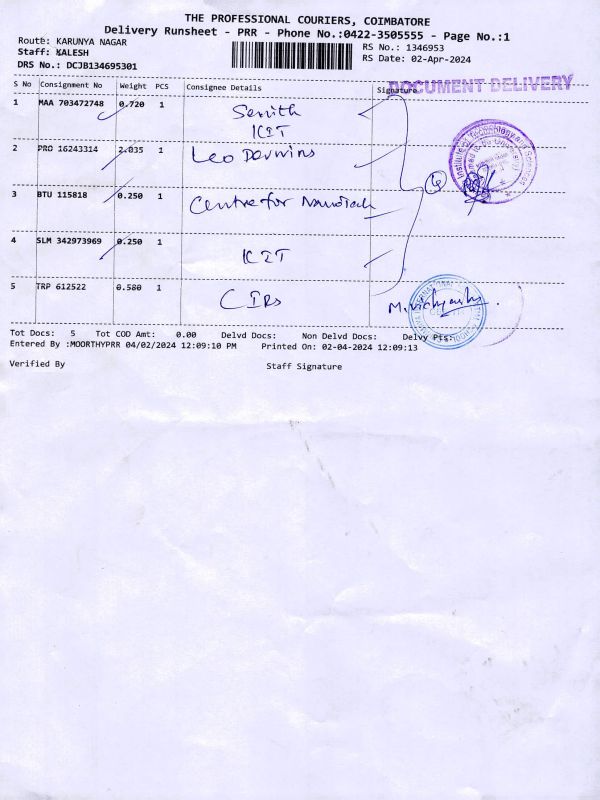 THE PROFESSIONAL COURIERS, COIMBATORE
Delivery Runsheet - PRR - Phone No.:0422-3505555 - Page No.:1
Route: KARUNYA NAGAR
Staff: KALESH
DRS No.: DCJB134695301
RS No.: 1346953
RS Date: 02-Apr-2024
DOCUMENT DELIVERY
S No Consignment No Weight PCS Consignee Details Signature
1 MAA 703472748 0.720 1
KIT
2 PRO 16243314 2.035 1 Leo Derwins
3 BTU 115818 0.250 1 Centre for NanoTech
4 SLM 342973969 0.250 1 KIT
5 TRP 612522 0.580 1 CIRs
Tot Docs: 5 Tot COD Amt: 0.00 Delvd Docs: Non Delvd Docs: Delvy Pts:
Entered By :MOORTHYPRR 04/02/2024 12:09:10 PM Printed On: 02-04-2024 12:09:13
Verified By Staff Signature